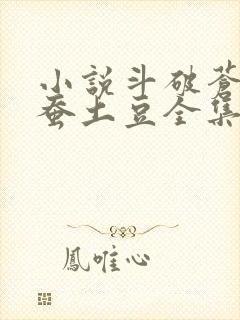 小説斗破蒼
蚕土豆全集
鳳唯心